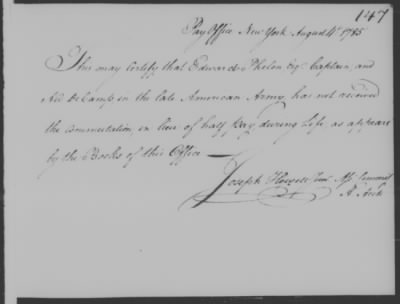 147
Pay Office New York August 4th 1785
This may Certify that Edward Phelon Esqr Captain and
Aid De Camp in the late American Army, has not received
the commutation in lieu of half Pay during Life as appears
by the Books of this Office —
Joseph Howell Junr Asst Commr
A Accts